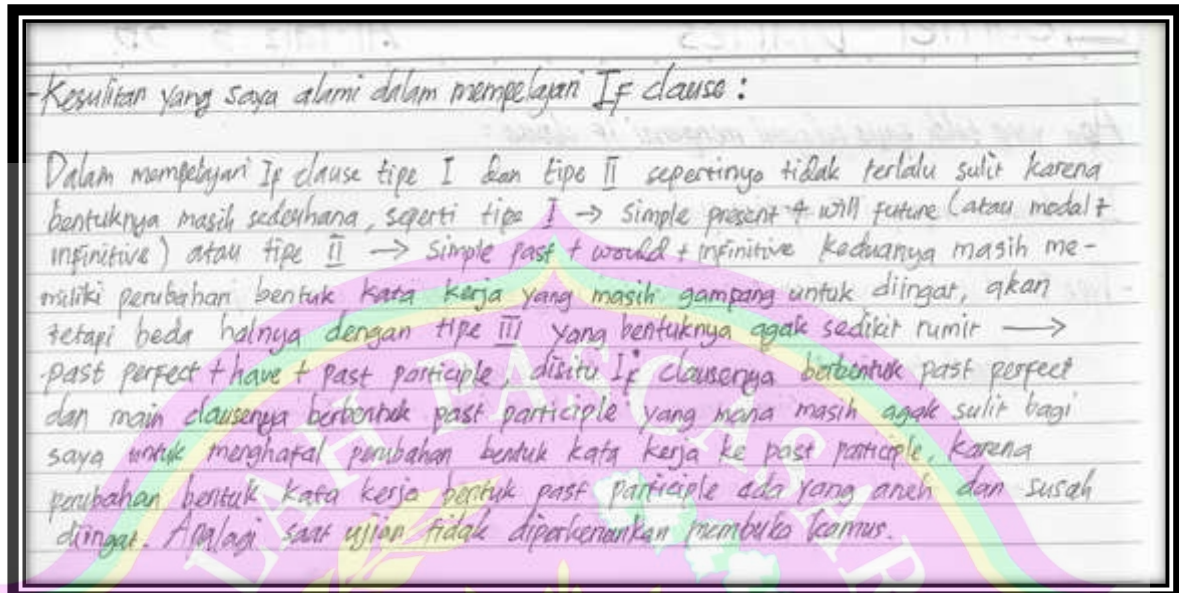 - Kesulitan yang saya alami dalam mempelajari If clause :
Dalam mempelajari If clause tipe I dan tipe II sepertinya tidak terlalu sulit karena
bentuknya masih sederhana, seperti tipe I → Simple present + will future (atau modal +
infinitive) atau tipe II → Simple past + would + infinitive keduanya masih me-
miliki perubahan bentuk kata kerja yang masih gampang untuk diingat, akan
tetapi beda halnya dengan tipe III yang bentuknya agak sedikit rumit →
past perfect + have + past participle, disitu If clausenya berbentuk past perfect
dan main clausenya berbentuk past participle yang mana masih agak sulit bagi
saya untuk menghafal perubahan bentuk kata kerja ke past participle, karena
perubahan bentuk kata kerja bentuk past participle ada yang aneh dan susah
diingat. Apalagi saat ujian tidak diperkenankan membuka kamus.
LAH PASCASAR